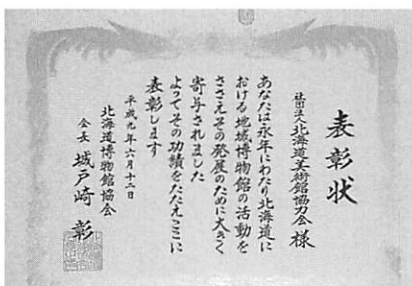 表彰状
社団法人北海道美術館協力会 様
あなたは永年にわたり北海道に
おける地域博物館の活動を
ささえその発展のために大きく
寄与されました
よってその功績をたたえここに
表彰します
平成九年六月十二日
北海道博物館協会
会長 城戸崎 彰